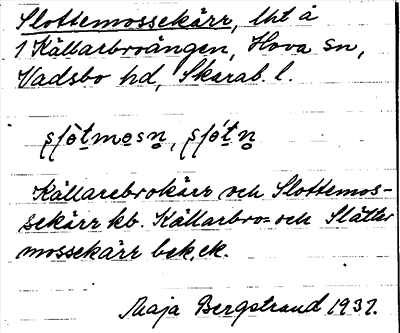 Slottemossekärr, lht å
1 Källarbroängen, Hova sn,
Vadsbo hd, Skarab. l.
Källarebrokärr och Slottemos-
sekärr kb. Källarbro- och Slätte
mossekärr bek. ek.
Maja Bergstrand 1937.